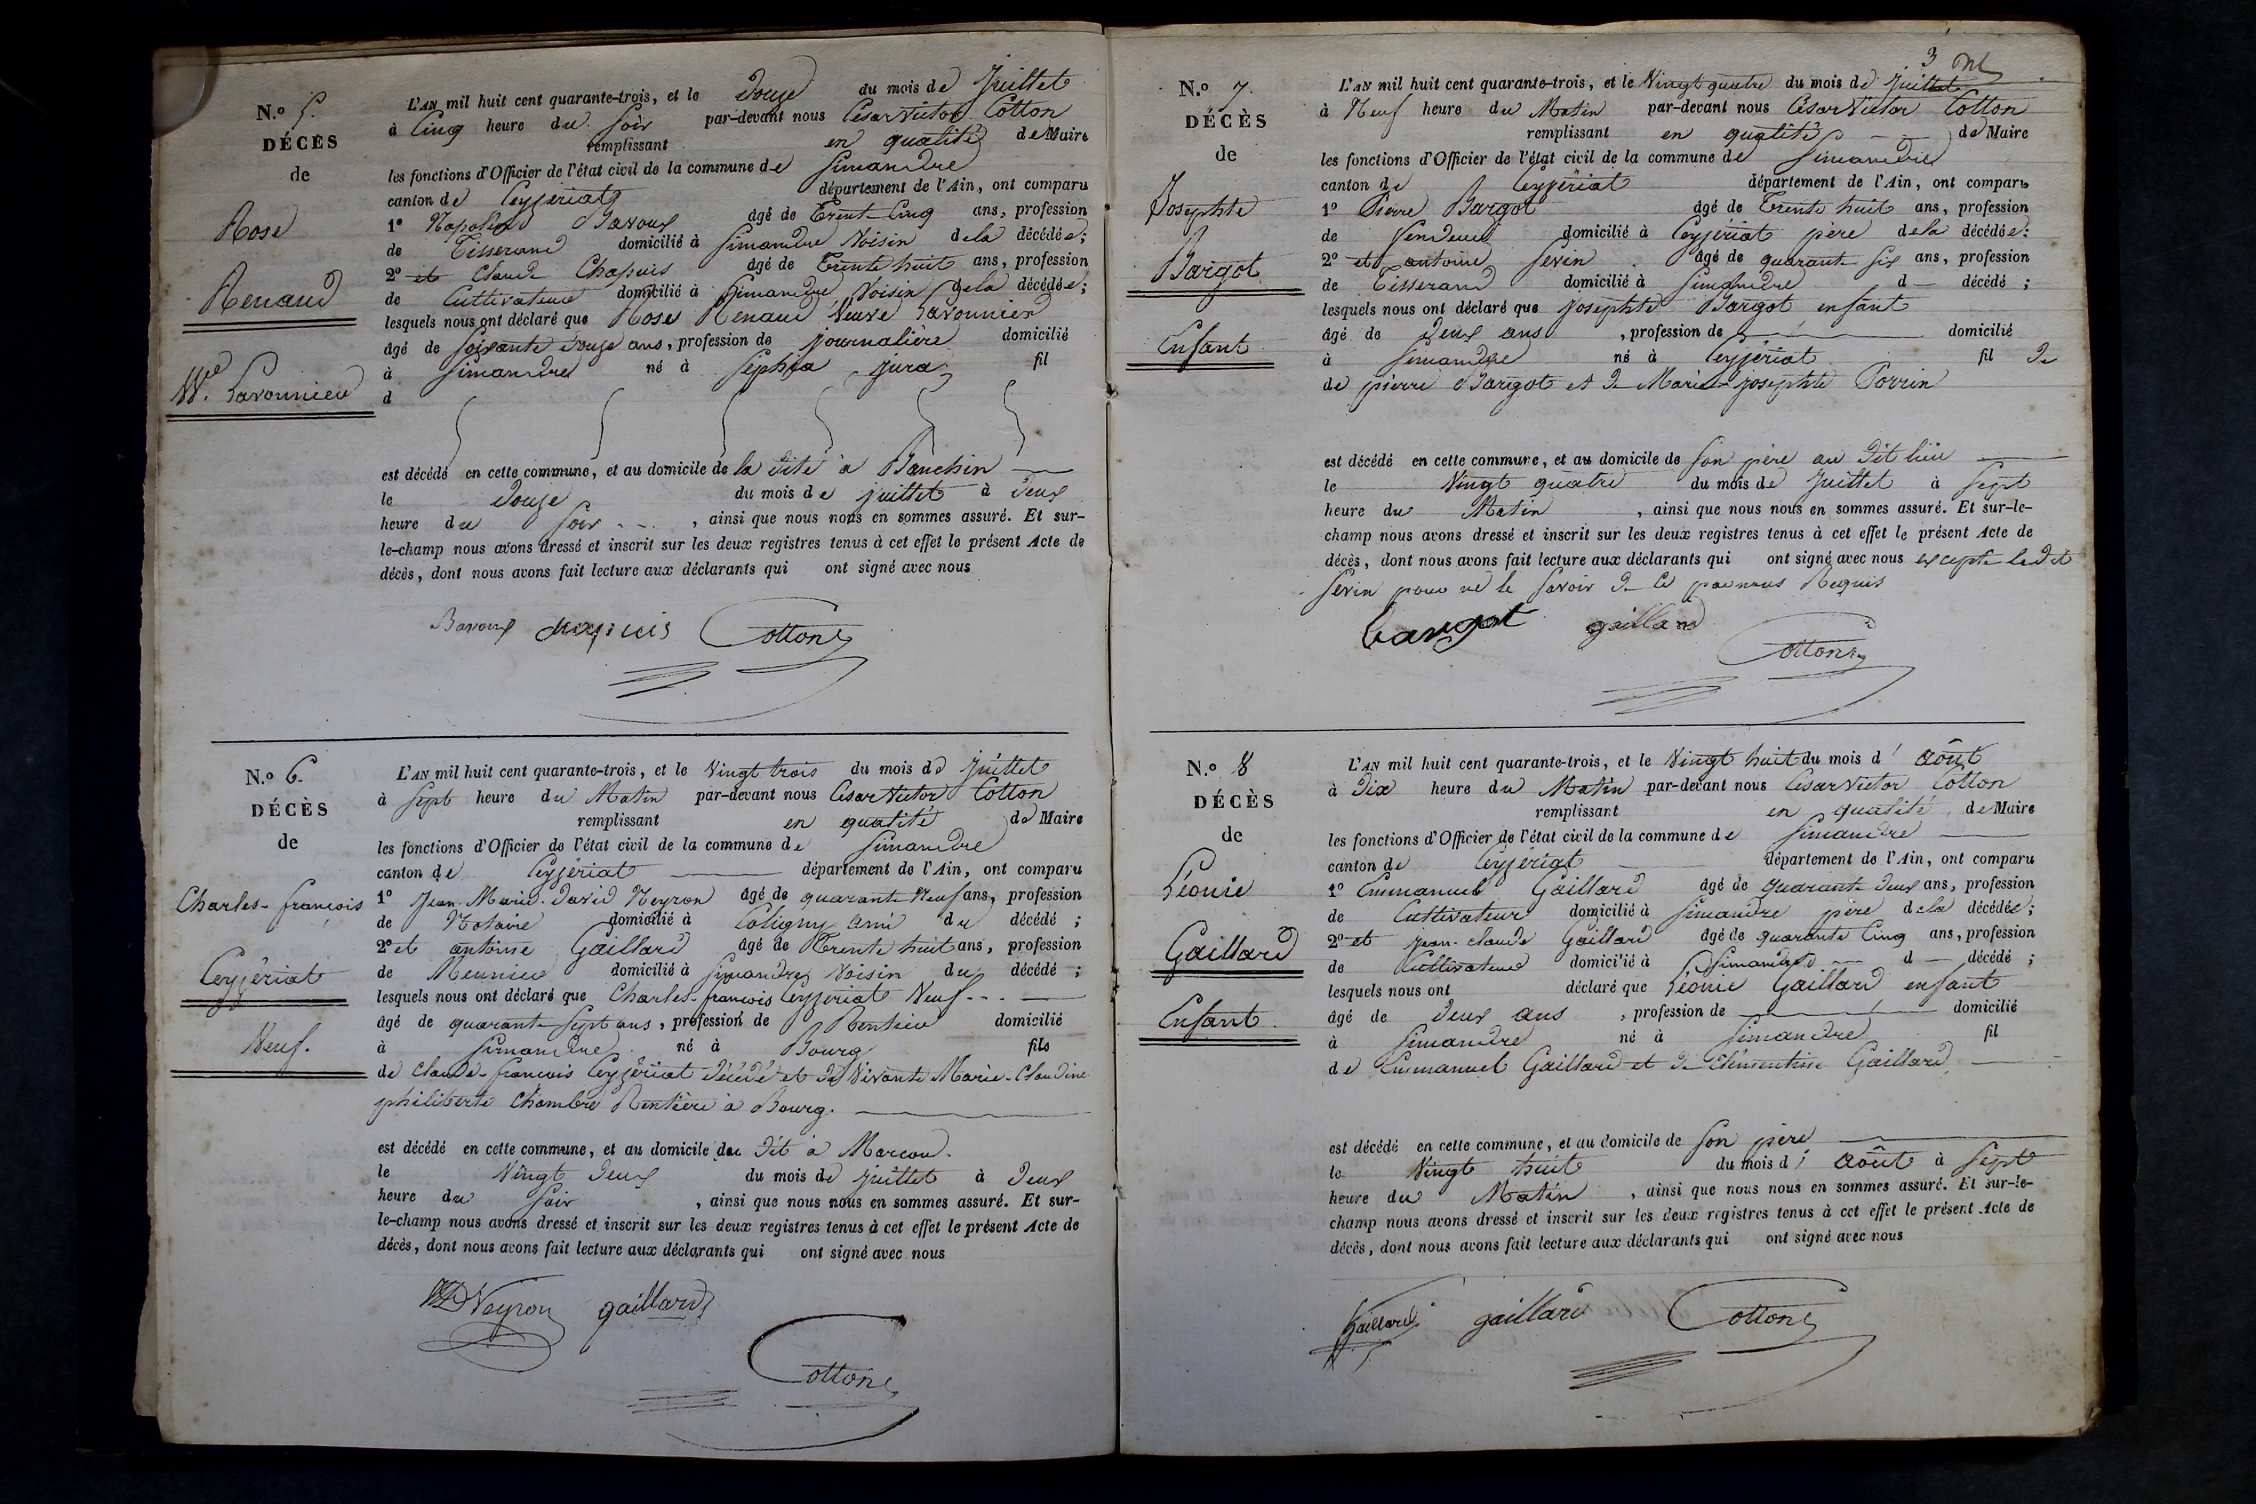 N.o 5.
DÉCÈS
de
Rose
Renaud
Ve. Savonnier
L'AN mil huit cent quarante-trois, et le Douze du mois de Juillet
à Cinq heure du Soir par-devant nous César Victor Cotton
remplissant en qualité de Maire
les fonctions d'Officier de l'état civil de la commune de Simandre
canton de Ceyzériat département de l'Ain, ont comparu
1º Napoléon Bavoux âgé de Trente Cinq ans, profession
de Tisserand domicilié à Simandre Voisin de la décédée;
2º et Claude Chapuis âgé de Trente huit ans, profession
de Cultivateur domicilié à Simandre Voisin de la décédée;
lesquels nous ont déclaré que Rose Renaud Veuve Savonnier
âgé de Soixante Douze ans, profession de journalière domicilié
à Simandre né à Sephia jura fil
d
est décédé en cette commune, et au domicile de la dite à Banchin
le Douze du mois de juillet à Deux
heure du Soir, ainsi que nous nous en sommes assuré. Et sur-
le-champ nous avons dressé et inscrit sur les deux registres tenus à cet effet le présent Acte de
décès, dont nous avons fait lecture aux déclarants qui ont signé avec nous
Bavoux chapuis Cotton
N.o 6.
DÉCÈS
de
Charles-françois
Ceyzériat
Veuf.
L'AN mil huit cent quarante-trois, et le Vingt trois du mois de Juillet
à Sept heure du Matin par-devant nous César Victor Cotton
remplissant en qualité de Maire
les fonctions d'Officier de l'état civil de la commune de Simandre
canton de Ceyzériat département de l'Ain, ont comparu
1º Jean-Marie-David Neyron âgé de quarante Neuf ans, profession
de Notaire domicilié à Coligny ami du décédé;
2º et antoine Gaillard âgé de Trente huit ans, profession
de Meunier domicilié à Simandre Voisin du décédé;
lesquels nous ont déclaré que Charles-françois Ceyzériat Veuf
âgé de quarante Sept ans, profession de Rentier domicilié
à Simandre né à Bourg fils
de Claude-françois Ceyzériat décédé et de Vivante Marie-Claudine
philiberte Chambre Rentière à Bourg.
est décédé en cette commune, et au domicile du dit à Marcou.
le Vingt Deux du mois de juillet à Deux
heure du Soir, ainsi que nous nous en sommes assuré. Et sur-
le-champ nous avons dressé et inscrit sur les deux registres tenus à cet effet le présent Acte de
décès, dont nous avons fait lecture aux déclarants qui ont signé avec nous
Neyron gaillard
Cotton
3
N.o 7.
DÉCÈS
de
Josephte
Bargot
Enfant
L'AN mil huit cent quarante-trois, et le Vingt quatre du mois de Juillet
à Neuf heure du Matin par-devant nous César Victor Cotton
remplissant en qualité de Maire
les fonctions d'Officier de l'état civil de la commune de Simandre
canton de Ceyzériat département de l'Ain, ont comparu
1º Pierre Bargot âgé de Trente huit ans, profession
de Vendeur domicilié à Ceyzériat père de la décédée;
2º et antoine Sevin âgé de quarante Six ans, profession
de Tisserand domicilié à Simandre d décédé;
lesquels nous ont déclaré que Josephte Bargot enfant
âgé de Deux ans, profession de domicilié
à Simandre né à Ceyzériat fil de
de pierre Bargot et de Marie-josephte Perrin
est décédé en cette commune, et au domicile de Son père au dit lieu
le Vingt quatre du mois de Juillet à Sept
heure du Matin, ainsi que nous nous en sommes assuré. Et sur-le-
champ nous avons dressé et inscrit sur les deux registres tenus à cet effet le présent Acte de
décès, dont nous avons fait lecture aux déclarants qui ont signé avec nous excepté le dit
Sevin pour ne le Savoir de ce par nous Requis
bargot gaillard
Cotton
N.o 8
DÉCÈS
de
Léonie
Gaillard
Enfant
L'AN mil huit cent quarante-trois, et le Vingt huit du mois d'août
à Dix heure du Matin par-devant nous César Victor Cotton
remplissant en qualité de Maire
les fonctions d'Officier de l'état civil de la commune de Simandre
canton de Ceyzériat département de l'Ain, ont comparu
1º Emmanuel Gaillard âgé de quarante Deux ans, profession
de Cultivateur domicilié à Simandre père de la décédée;
2º et Jean-claude Gaillard âgé de quarante Cinq ans, profession
de Cultivateur domicilié à Simandre d décédé;
lesquels nous ont déclaré que Léonie Gaillard enfant
âgé de Deux ans, profession de domicilié
à Simandre né à Simandre fil
de Emmanuel Gaillard et de Clémentine Gaillard
est décédé en cette commune, et au domicile de Son père
le Vingt huit du mois d'août à Sept
heure du Matin, ainsi que nous nous en sommes assuré. Et sur-le-
champ nous avons dressé et inscrit sur les deux registres tenus à cet effet le présent Acte de
décès, dont nous avons fait lecture aux déclarants qui ont signé avec nous
Gaillard gaillard Cotton